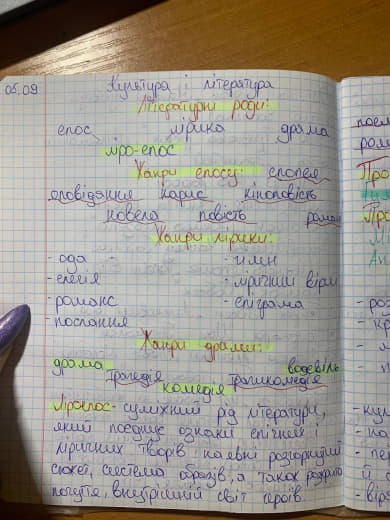 05.09 Культура і література
Літературні роди:
епос лірика драма
ліро-епос
Жанри епосу: епопея
оповідання нарис кіноповість
новела повість роман
Жанри лірики:
- ода - гімн
- елегія - ліричний вірш
- романс - епіграма
- послання
Жанри драми:
драма водевіль
трагедія трагикомедія
комедія
Ліроепос - суміжний рід літератури,
який поєднує ознаки епічних і
ліричних творів: наявні розгорнутий
сюжет, система образів, а також розкрито
почуття, внутрішній світ героїв.